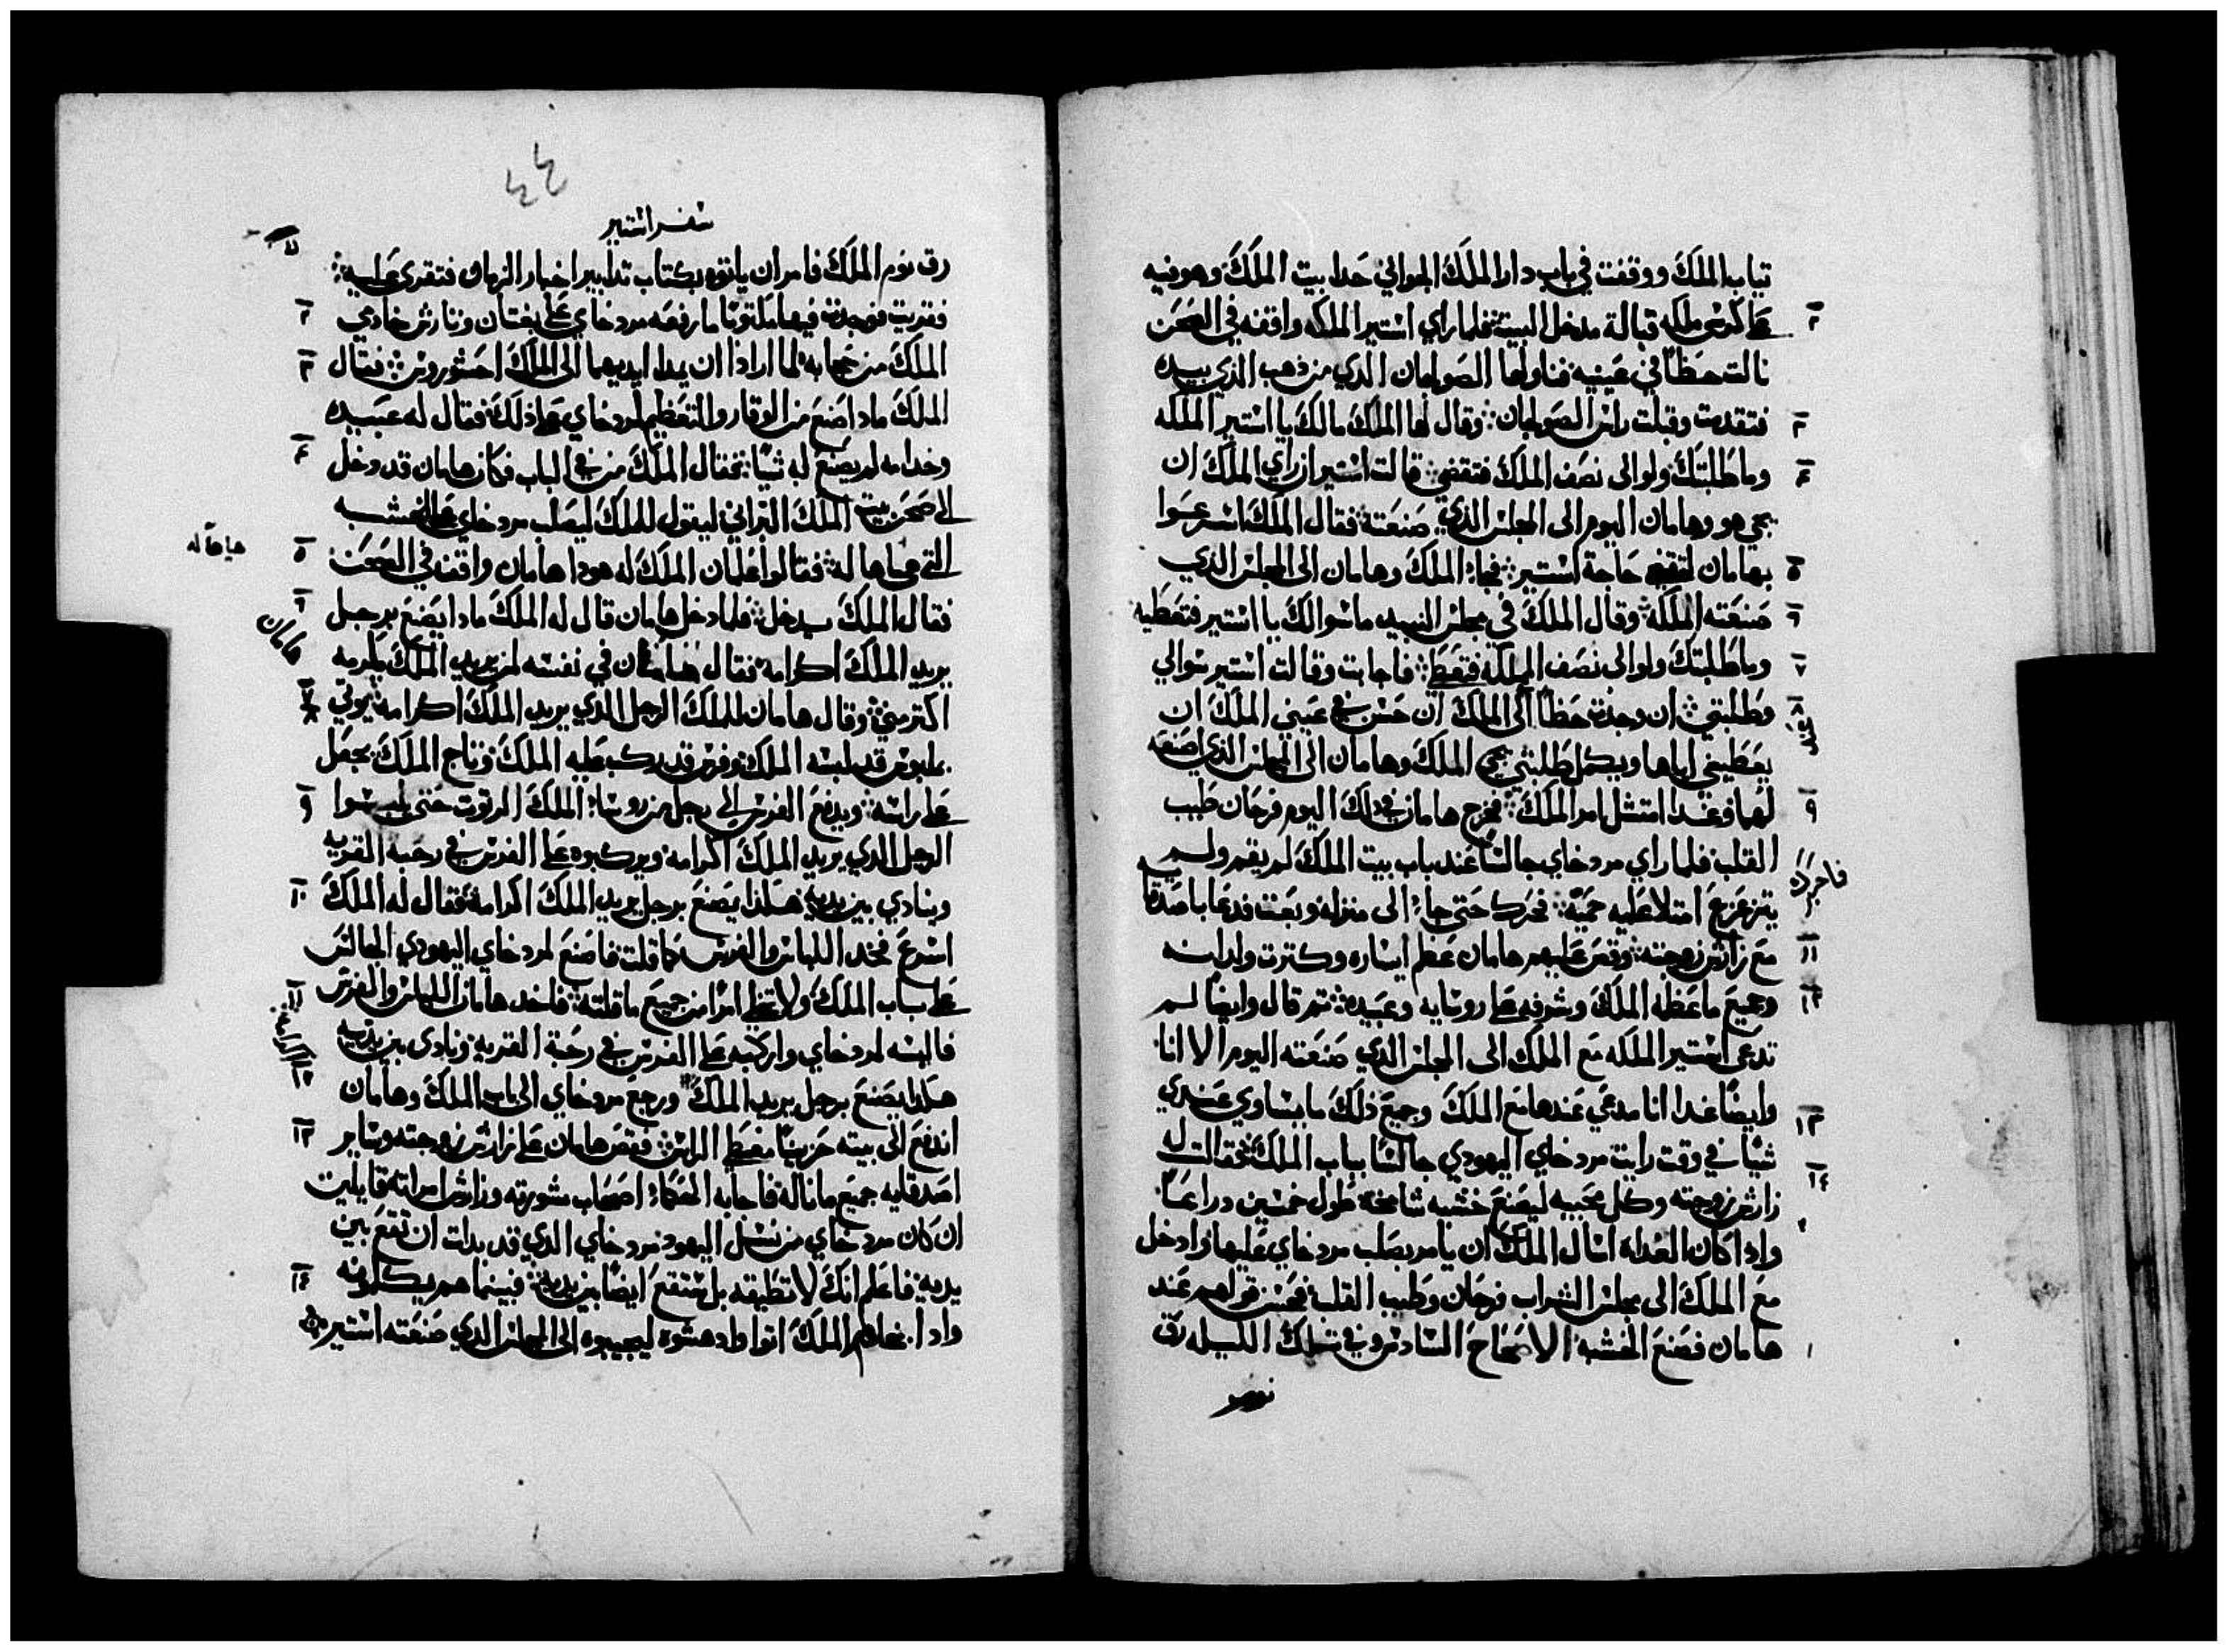 تياب الملك ووقفت في باب دار الملك الجواني حدا بيت الملك وهو فيه
٢ على كرسي ملكه قبالة مدخل البيت فلما راي استير الملكه واقفه في الصحن
نالت حظا في عينيه فناولها الصولجان الدي من دهب الذي بيده
٣ فتقدمت وقبلت راس الصولجان وقال لها الملك مالك يا استير الملكه
٤ وما طلبتك ولو الى نصف الملك فتقضي قالت استير ان راي الملك ان
يجي هو وهامان اليوم الى المجلس الذي صنعته فقال الملك اسرعوا
٥ بهامان لتقضي حاجة استير فجاء الملك وهامان الى المجلس الذي
٦ صنعته الملكة وقال الملك في مجلس النبيد ما سوالك يا استير فتعطيه
٧ وما طلبتك ولو الى نصف المملكة فتعطى فاجابت وقالت استير سوالي
٨ وطلبتي ان وجدت حظا الى الملك ان حسن في عيني الملك ان
يعطيني اياها ويكمل طلبتي يجي الملك وهامان الى المجلس الذي اصنعه
٩ لهما وغدا امتثل امر الملك فخرج هامان في دلك اليوم فرحان طيب
القلب فلما راي مردخاي جالسا عند باب بيت الملك لم يقم ولم
يتزعزع امتلا عليه حمية فحرك حتى جاء الى منزله وبعت فدعا باصدقا
١١ مع زارش زوجته وقص عليهم هامان عظم ايساره وكترت ولدانه
١٢ وجميع ما عظمه الملك وشرفه على روسايه وعبيده تم قال وايضا لم
تدعى استير الملكه مع الملك الى المجلس الذي صنعته اليوم الا انا
١٣ وايضا غدا انا مدعي عندها مع الملك وجميع ذلك ما يساوي عندي
شيا في وقت رايت مردخاي اليهودي جالسا بباب الملك فقالت له
١٤ زارش زوجته وكل محبيه ليصنع خشبه شامخة طول خمسين دراعا
وادا كان الغداه اسال الملك ان يامر بصلب مردخاي عليها وادخل
مع الملك الى مجلس الشراب فرحان وطيب القلب فحسن قولهم عند
١ هامان فصنع الخشبه الاصحاح السادس وفي تلك الليله رق
نوم
٤٤
سفر استير
رق نوم الملك فامر ان ياتوه بكتاب تدابير اخبار الزمان فتقرى عليه
٢ فقريت فوجدت فيها مكتوبا ما رفعه مردخاي على بغتان وتارش خادمي
٣ الملك من حجابه لما ارادا ان يمدا ايديهما الى الملك احشوروش فقال
الملك مادا صنع من الوقار والتعظيم لمردخاي على ذلك فقال له عبيده
٤ وخدامه لم يصنع له شيا فقال الملك من في الباب فكان هامان قد دخل
الى صحن بيت الملك البراني ليقول للملك ليصلب مردخاي على الخشبه
٥ التي هياها له فقالوا غلمان الملك له هودا هامان واقف في الصحن
هياها له
٦ فقال الملك يدخل فلما دخل هامان قال له الملك مادا يصنع برجل
هامان
يريد الملك اكرامه فقال هامان في نفسه لمن يريد الملك يكرمه
٧ ٨ اكتر مني وقال هامان للملك الرجل الذي يريد الملك اكرامه يوتي
بملبوس قد لبسه الملك وفرس قد ركب عليه الملك وتاج الملك يجعل
٩ على راسه ويدفع الفرس الى رجل من روساء الملك المرتوت حتى يلبسوا
الرجل الذي يريد الملك اكرامه ويركبوه على الفرس في رحبة القريه
١٠ وينادي بين يديه هكذا يصنع برجل يريد الملك اكرامه فقال له الملك
اسرع فخد اللباس والفرس كما قلت فاصنع لمردخاي اليهودي الجالس
١١ على باب الملك ولا تخط امرا من جميع ما قلته فاخد هامان اللباس والفرس
فالبسه لمردخاي واركبه على الفرس في رحبة القريه ونادى بين يديه
١٢ هكذا يصنع برجل يريد الملك ورجع مردخاي الى باب الملك وهامان
١٣ اندفع الى بيته حزينا مغطى الراس فقص هامان على زارش زوجته وساير
اصدقايه جميع ما ناله فاجابه الحكماء اصحاب مشورته وزارش امراته قايليت
ان كان مردخاي من نسل اليهود مردخاي الذي قد بدات ان تقع بين
١٤ يديه فاعلم انك لا تطيقه بل ستقع ايضا بين يديه فبينما هم يكلمونه
وادا بخدام الملك اتوا وادهشوه ليجيبوه الى المجلس الذي صنعته استير